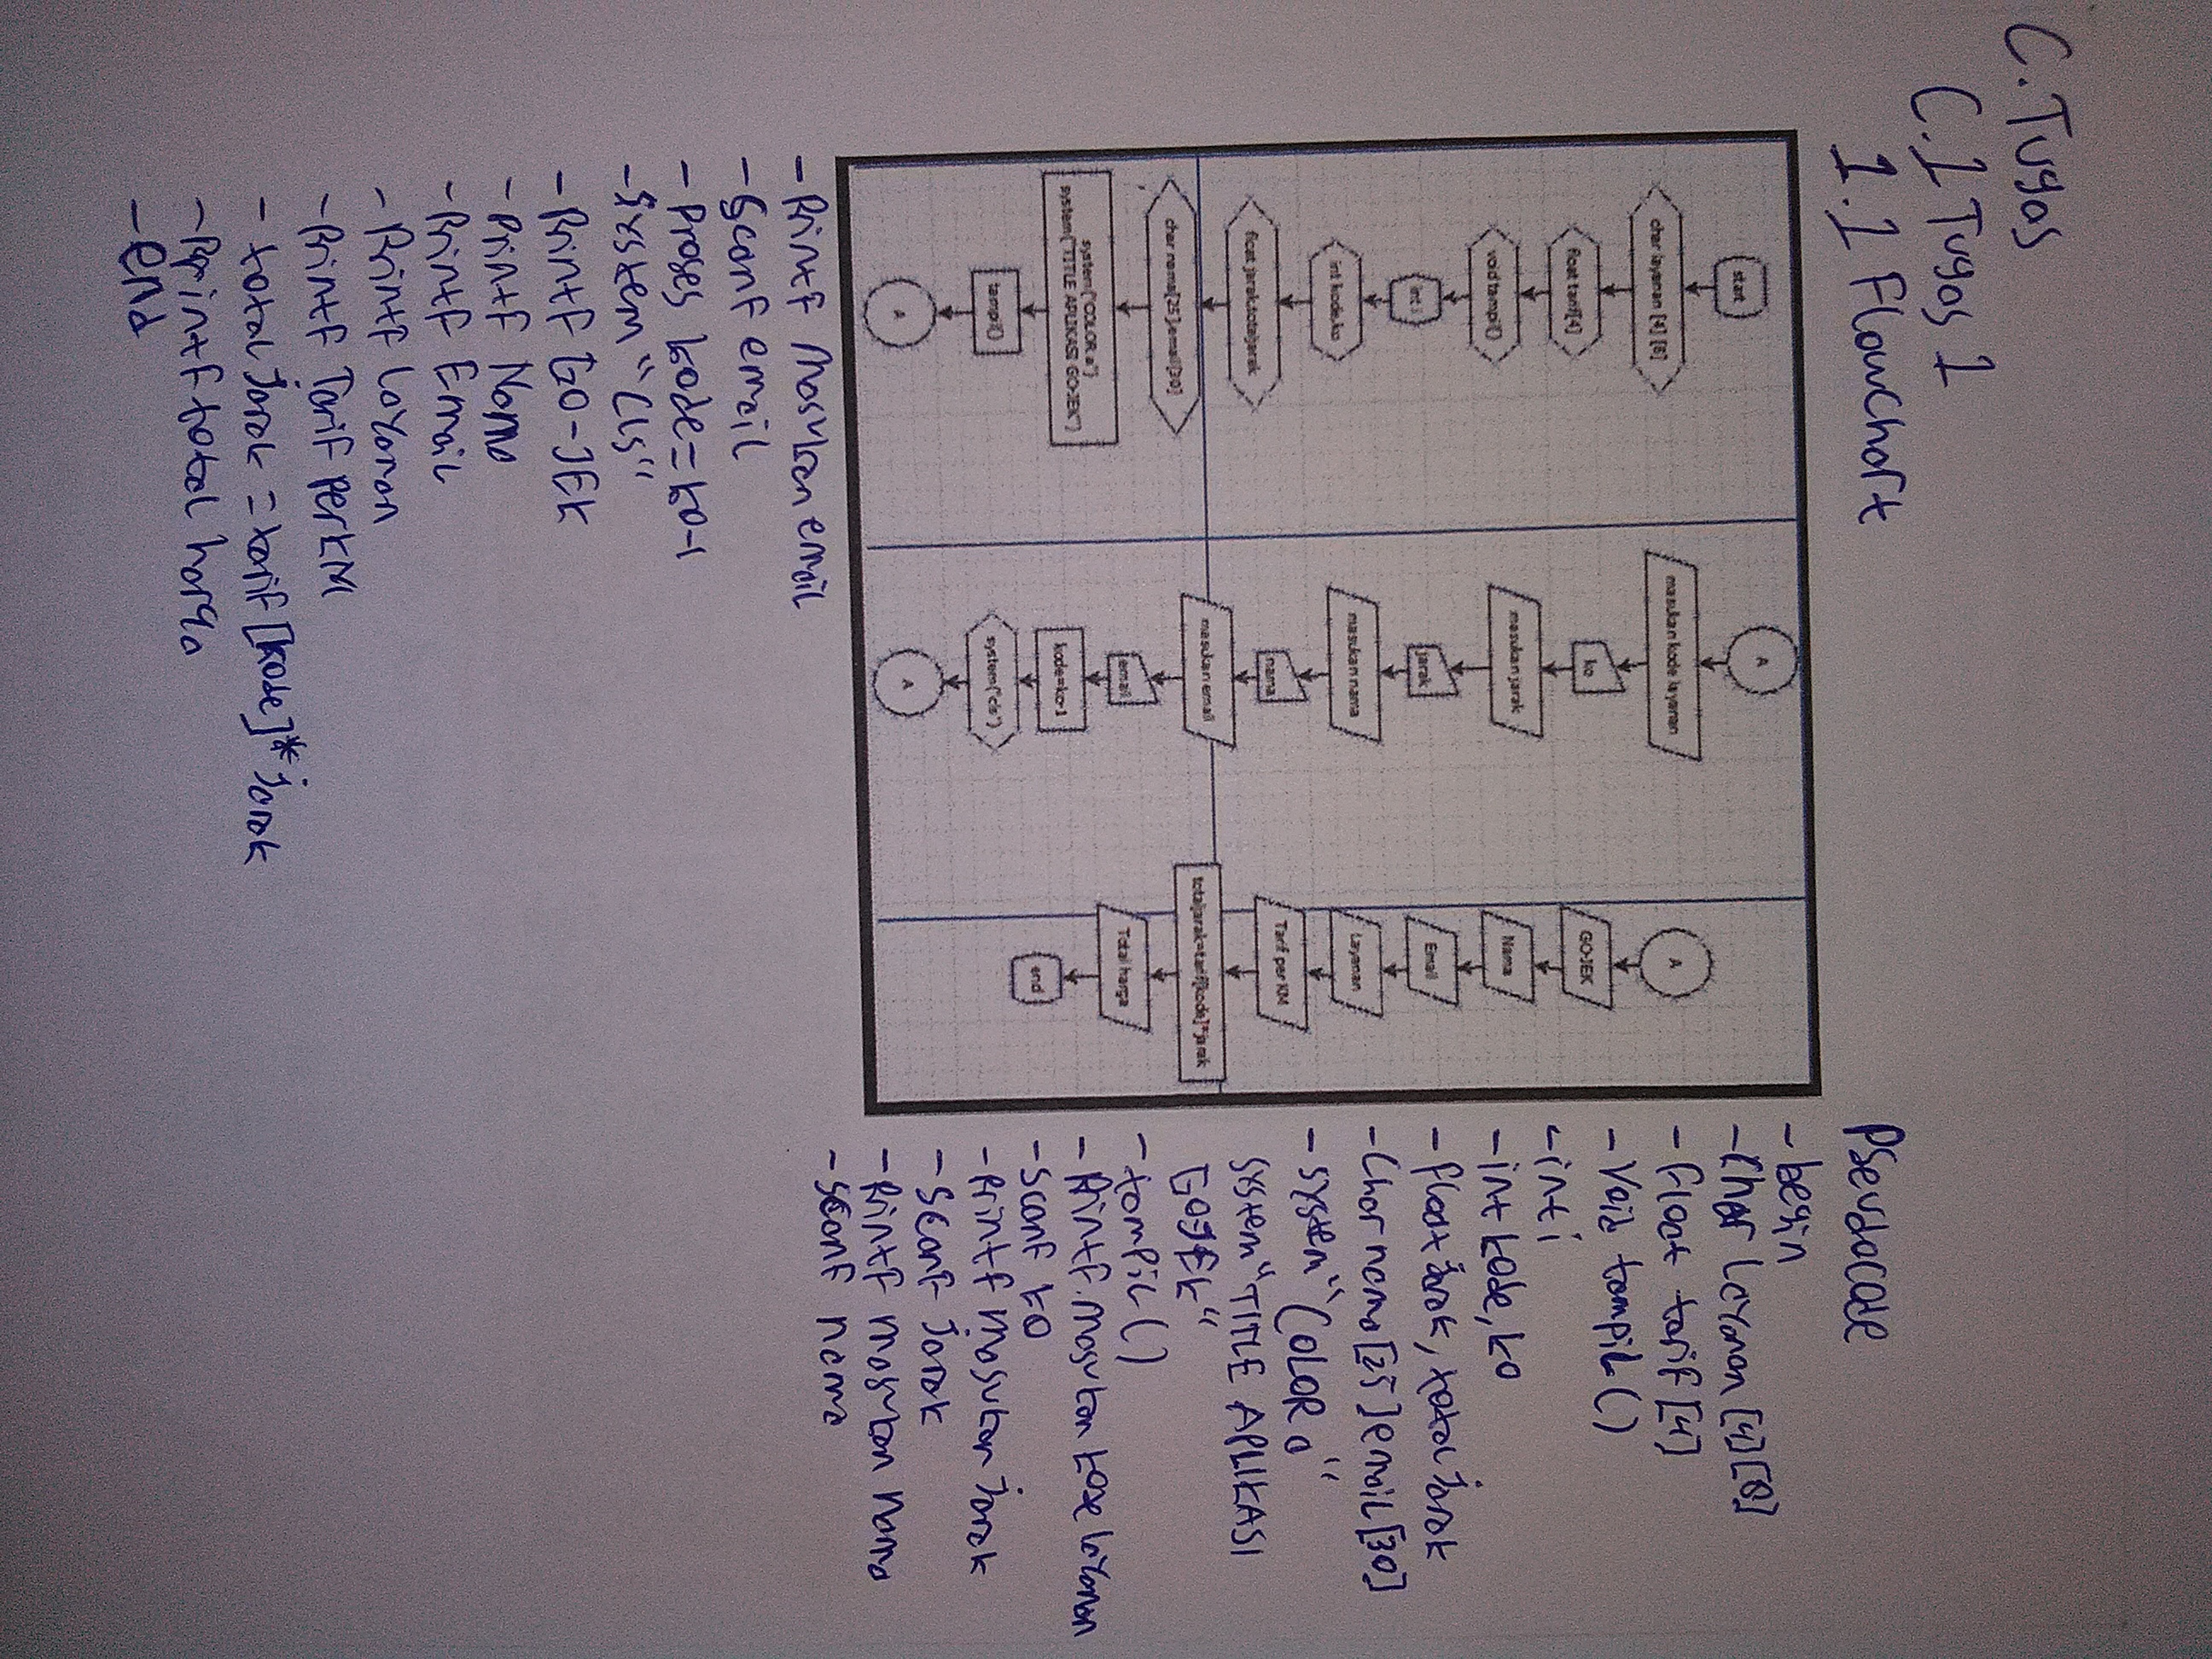 C. Tugas
C.1 Tugas 1
1.1 Flowchart
start
char layanan [4] [8]
float tarif[4]
void tampil()
int i
int kode,ko
float jarak,totaljarak
char nama[25],email[30]
system("COLOR a")
system("TITLE APLIKASI GO-JEK")
tampil()
A
A
masukan kode layanan
ko
masukan jarak
jarak
masukan nama
nama
masukan email
email
kode=ko-1
system("cls")
A
A
GO-JEK
Nama
Email
Layanan
Tarif per KM
totaljarak=tarif[kode]*jarak
Total harga
end
Pseudocode
- begin
- Char layanan[4][8]
- float tarif[4]
- Void tampil()
- int i
- int kode, ko
- float jarak, total jarak
- Char nama[25]email[30]
- system "(COLOR a"
system "TITLE APLIKASI
GOJEK"
- tampil ()
- Printf Masukan kode layanan
- scanf ko
- Printf Masukan jarak
- Scanf jarak
- Printf Masukan nama
- Scanf nama
- Printf Masukan email
- Scanf email
- Proses kode=ko-1
- System "CLS"
- Printf GO-JEK
- Printf Nama
- Printf Email
- Printf Layanan
- Printf Tarif Per KM
- total jarak = tarif[kode]*jarak
- Printf total harga
- end